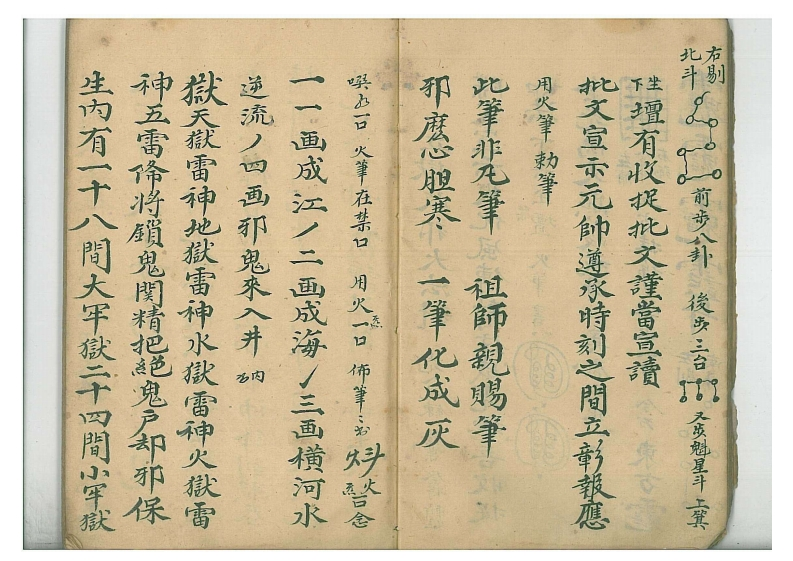 右剔
北斗 前步八卦 後步三台 又步魁星斗 上箕
坐下壇有收捉批文謹當宣讀
批文宣示元帥遵承時刻之間立彰報應
用火筆 勅筆
此筆非凡筆 祖師親賜筆
邪麽心胆寒 一筆化成灰
噀水一口 火筆在禁口 用火一口 佈筆
一一画成江ノ二画成海ノ三画横河水
逆流ノ四画邪鬼來入井
獄天獄雷神地獄雷神水獄雷神火獄雷
神五雷俻将鎖鬼関精把絕鬼戸却邪保
生内有一十八間大牢獄二十四間小牢獄